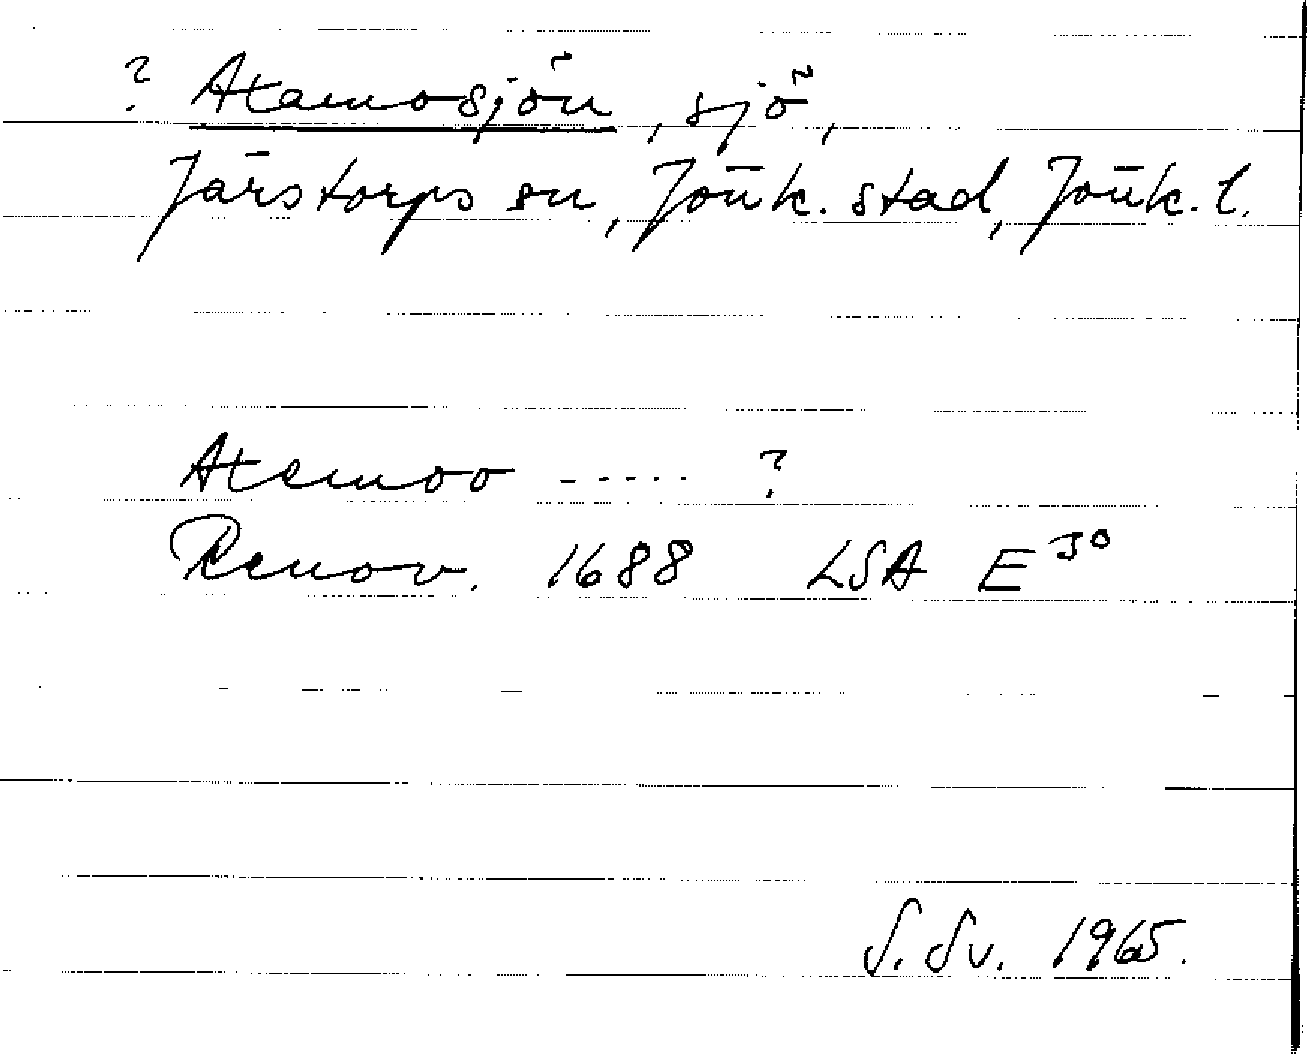 ? Atamosjön, sjö,
Järstorps sn, Jönk. stad, Jönk. l.
Atemoo ----- ?
Renov. 1688 LSA E 30
S. Sv. 1965.